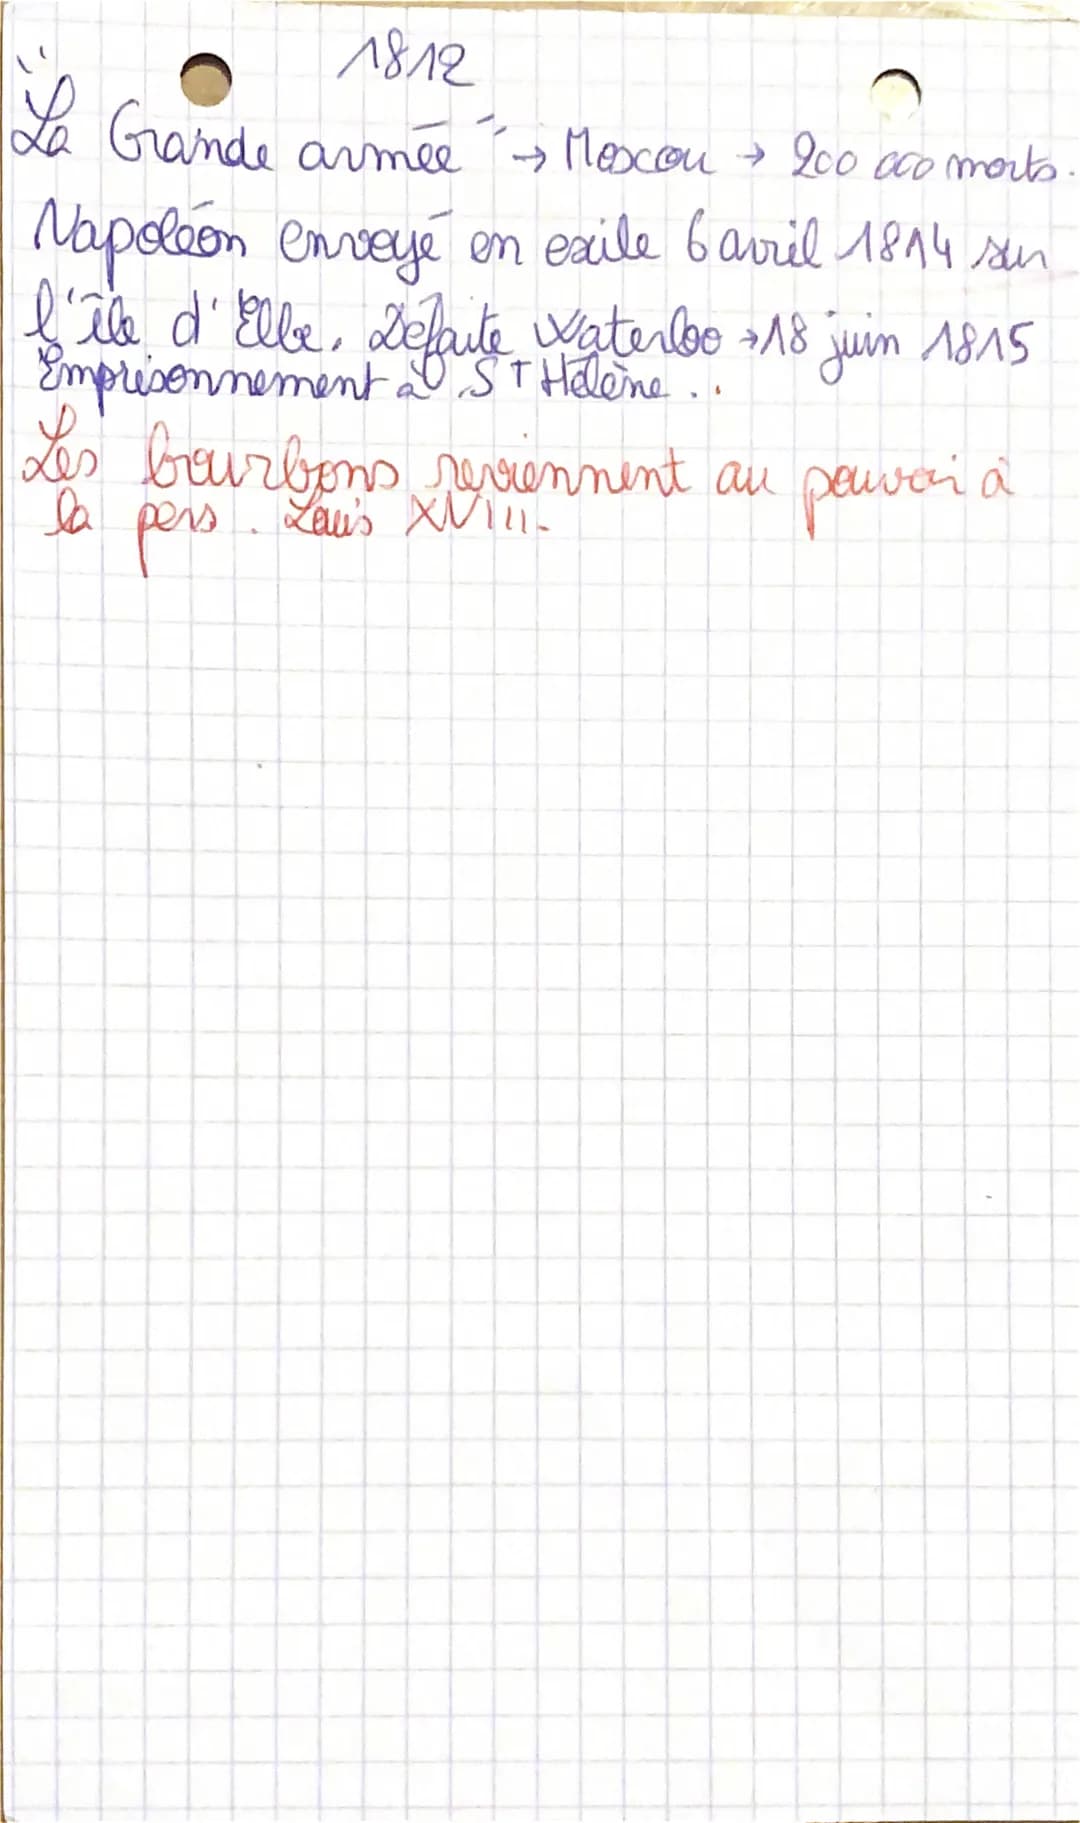 1812
"La Grande armée" → Moscou → 200 000 morts.
Napoléon envoyé en exile 6 avril 1814 sur
l'île d'Elbe. Défaite Waterloo → 18 juin 1815
Emprisonnement à ST Hélène...
Les bourbons reviennent au pouvoir à
la pers. Louis XVIII.